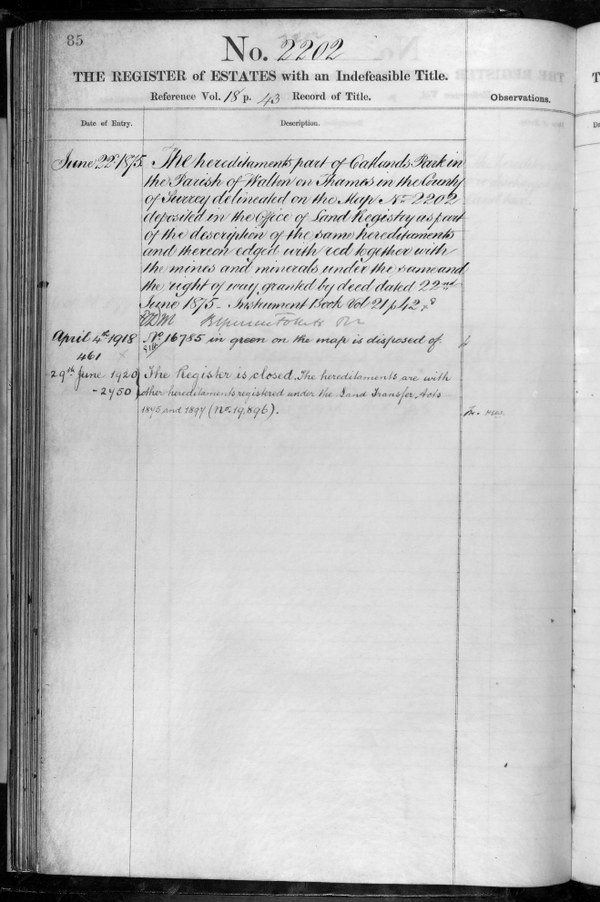 85
No. 2202
THE REGISTER of ESTATES with an Indefeasible Title.
Reference Vol. 18 p. 43 Record of Title.
Observations.
Date of Entry.
Description.
June 22 1875 The hereditaments part of Oatlands Park in
the Parish of Walton on Thames in the County
of Surrey delineated on the Map No 2202
deposited in the Office of Land Registry as part
of the description of the same hereditaments
and thereon edged with red together with
the mines and minerals under the same and
the right of way granted by deed dated 22nd
June 1875 - Instrument Book Vol 21 p 42
April 4th 1918 No 16785 in green on the map is disposed of.
461
29th June 1920 The Register is closed. The hereditaments are with
-2450 other hereditaments registered under the Land Transfer Acts
1875 and 1897 (No. 19,896).